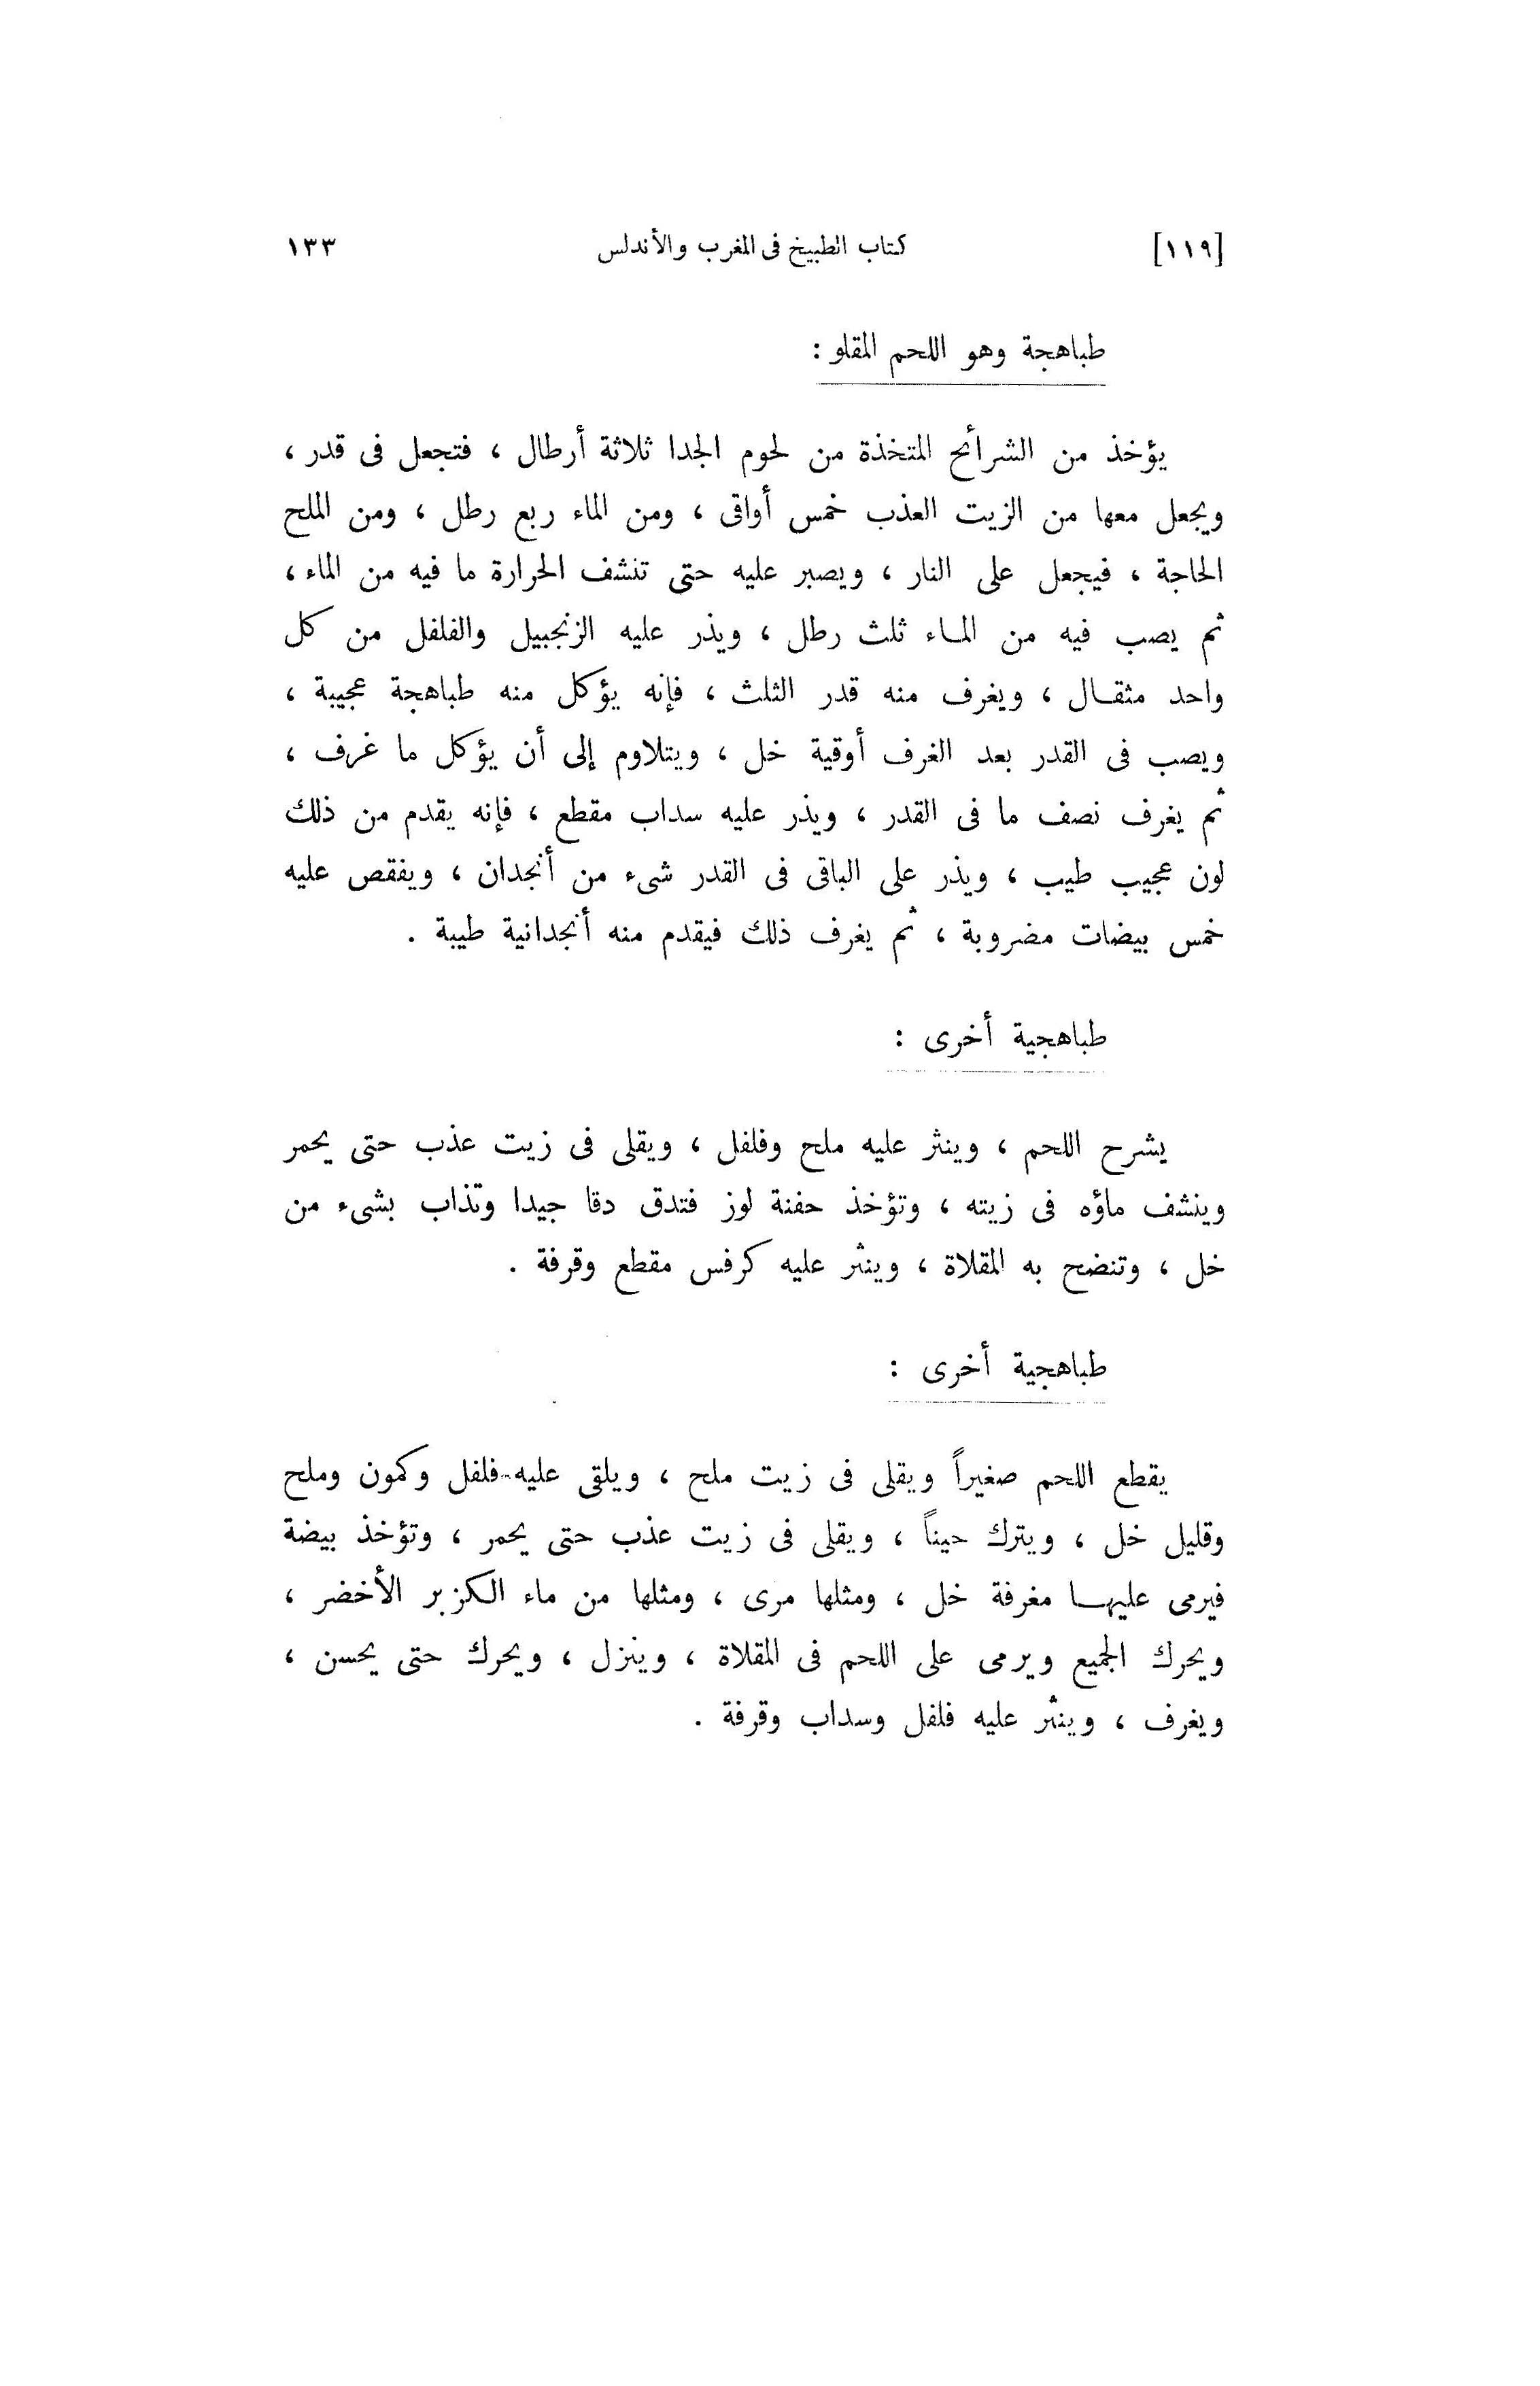 [١١٩] كتاب الطبيخ فى المغرب والأندلس ١٣٣
طباهجة وهو اللحم المقلو :
يؤخذ من الشرأئح المتخذة من لحوم الجدا ثلاثة أرطال ، فتجعل فى قدر ،
ويجعل معها من الزيت العذب خمس أواقى ، ومن الماء ربع رطل ، ومن الملح
الحاجة ، فيجعل على النار ، ويصبر عليه حتى تنشف الحرارة ما فيه من الماء ،
ثم يصب فيه من المـاء ثلث رطل ، ويذر عليه الزنجبيل والفلفل من كل
واحد مثقـال ، ويغرف منه قدر الثلث ، فإنه يؤكل منه طباهجة عجيبة ،
ويصب فى القدر بعد الغرف أوقية خل ، ويتلاوم إلى أن يؤكل ما غرف ،
ثم يغرف نصف ما فى القدر ، ويذر عليه سداب مقطع ، فإنه يقدم من ذلك
لون عجيب طيب ، ويذر على الباقى فى القدر شىء من أنجدان ، ويفقص عليه
خمس بيضات مضروبة ، ثم يغرف ذلك فيقدم منه أنجدانية طيبة .
طباهجية أخرى :
يشرح اللحم ، وينثر عليه ملح وفلفل ، ويقلى فى زيت عذب حتى يحمر
وينشف ماؤه فى زيته ، وتؤخذ حفنة لوز فتدق دقا جيدا وتذاب بشىء من
خل ، وتنضح به المقلاة ، وينثر عليه كرفس مقطع وقرفة .
طباهجية أخرى :
يقطع اللحم صغيراً ويقلى فى زيت ملح ، ويلقى عليه فلفل وكمون وملح
وقليل خل ، ويترك حيناً ، ويقلى فى زيت عذب حتى يحمر ، وتؤخذ بيضة
فيرمى عليهـا مغرفة خل ، ومثلها مرى ، ومثلها من ماء الكزبر الأخضر ،
ويحرك الجميع ويرمى على اللحم فى المقلاة ، وينزل ، ويحرك حتى يحسن ،
ويغرف ، وينثر عليه فلفل وسداب وقرفة .